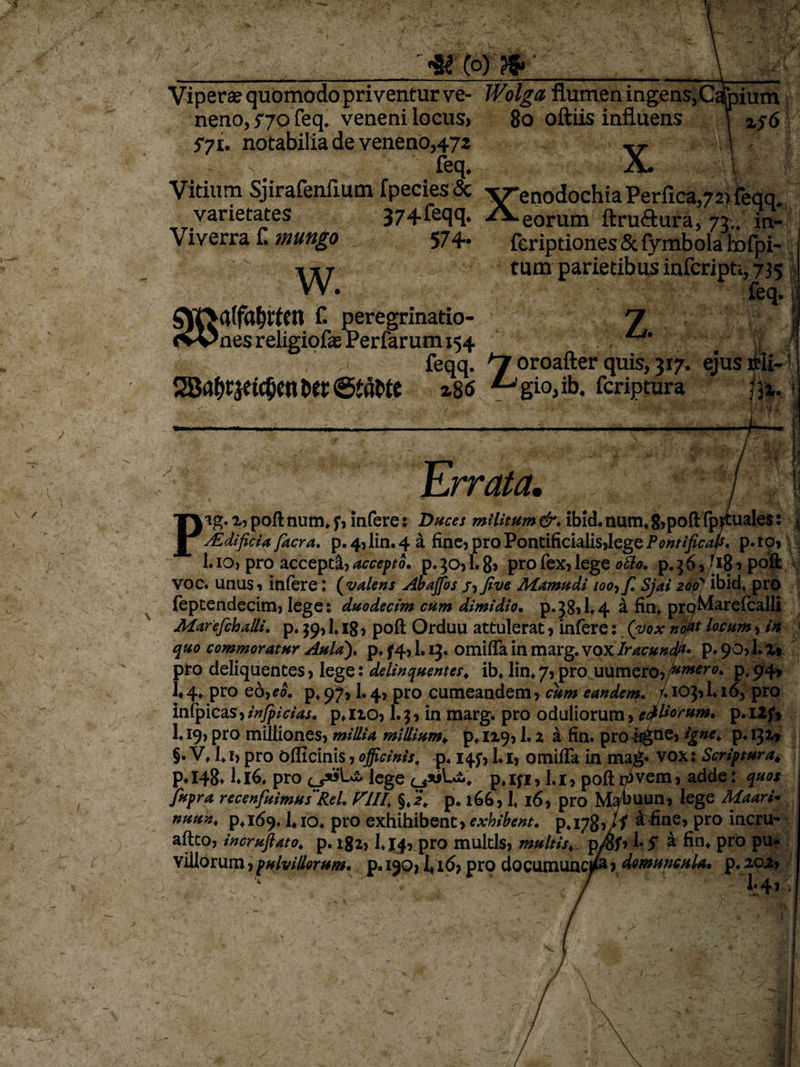 (o)
Viperæ quomodo priventur ve-
neno, 570 seq. veneni locus,
571. notabilia de veneno, 472
seq.
Vitium Sjirasensium species &
varietates 374. seqq.
Viverra s. mungo 574.
W.
Wallfahrten s. peregrinatio-
nes religiosæ Persarum 154
seqq.
Wahrzeichen der Städte 286
Wolga flumen ingens, Caspium
80 ostiis influens 256
X.
Xenodochia Persica, 721 seqq.
eorum structura, 73.. in-
scriptiones & symbola hospi-
tum parietibus inscripti, 735
seq.
Z.
Zoroaster quis, 317. ejus reli-
gio, ib. scriptura
Errata.
Pag. 2, post num. 5, insere: Duces militum &. ibid. num. 8, post spirituales:
Ædificia sacra. p. 4, lin. 4 à fine, pro Pontificialis, lege Pontificalis. p. 10,
l. 10, pro acceptâ, accepto. p. 30, l. 8, pro sex, lege octo. p. 36, l. 18, post
voc. unus, insere: (valens Abassos 5, sive Mamudi 100, s. Sjai 200) ibid. pro
septendecim, lege: duodecim cum dimidio. p. 38, l. 4 à fin. pro Marescalli
Mareschalli. p. 39, l. 18, post Orduu attulerat, insere: (vox notat locum, in
quo commoratur Aula). p. 54, l. 13. omissa in marg. vox Iracundia. p. 90, l. 2,
pro deliquentes, lege: delinquentes. ib. lin. 7, pro uumero, numero. p. 94,
l. 4. pro eò, eo. p. 97, l. 4, pro cumeandem, cum eandem. p. 103, l. 16, pro
inspicas, inspicias. p. 120, l. 3, in marg. pro oduliorum, edulliorum. p. 125,
l. 19, pro milliones, millia millium. p. 129, l. 2 à fin. pro ingne, igne. p. 132,
§. V. l. 1, pro ôfficinis, officinis. p. 145, l. 1, omissa in mag. vox: Scriptura.
p. 148. l. 16. pro lege p. 151, l. 1, post rivem, adde: quos
supra recensuimus Rel. VIII. §. 2. p. 166, l. 16, pro Mabuun, lege Maari-
nuun. p. 169. l. 10. pro exhihibent, exhibent. p. 178, l. 5 à fine, pro incru-
astto, incrustato. p. 182, l. 14, pro multls, multis. p. 185, l. 5 à fin. pro pu-
villorum, pulvillorum. p. 190, l. 16, pro documuncula, domuncula. p. 202,
l. 4,